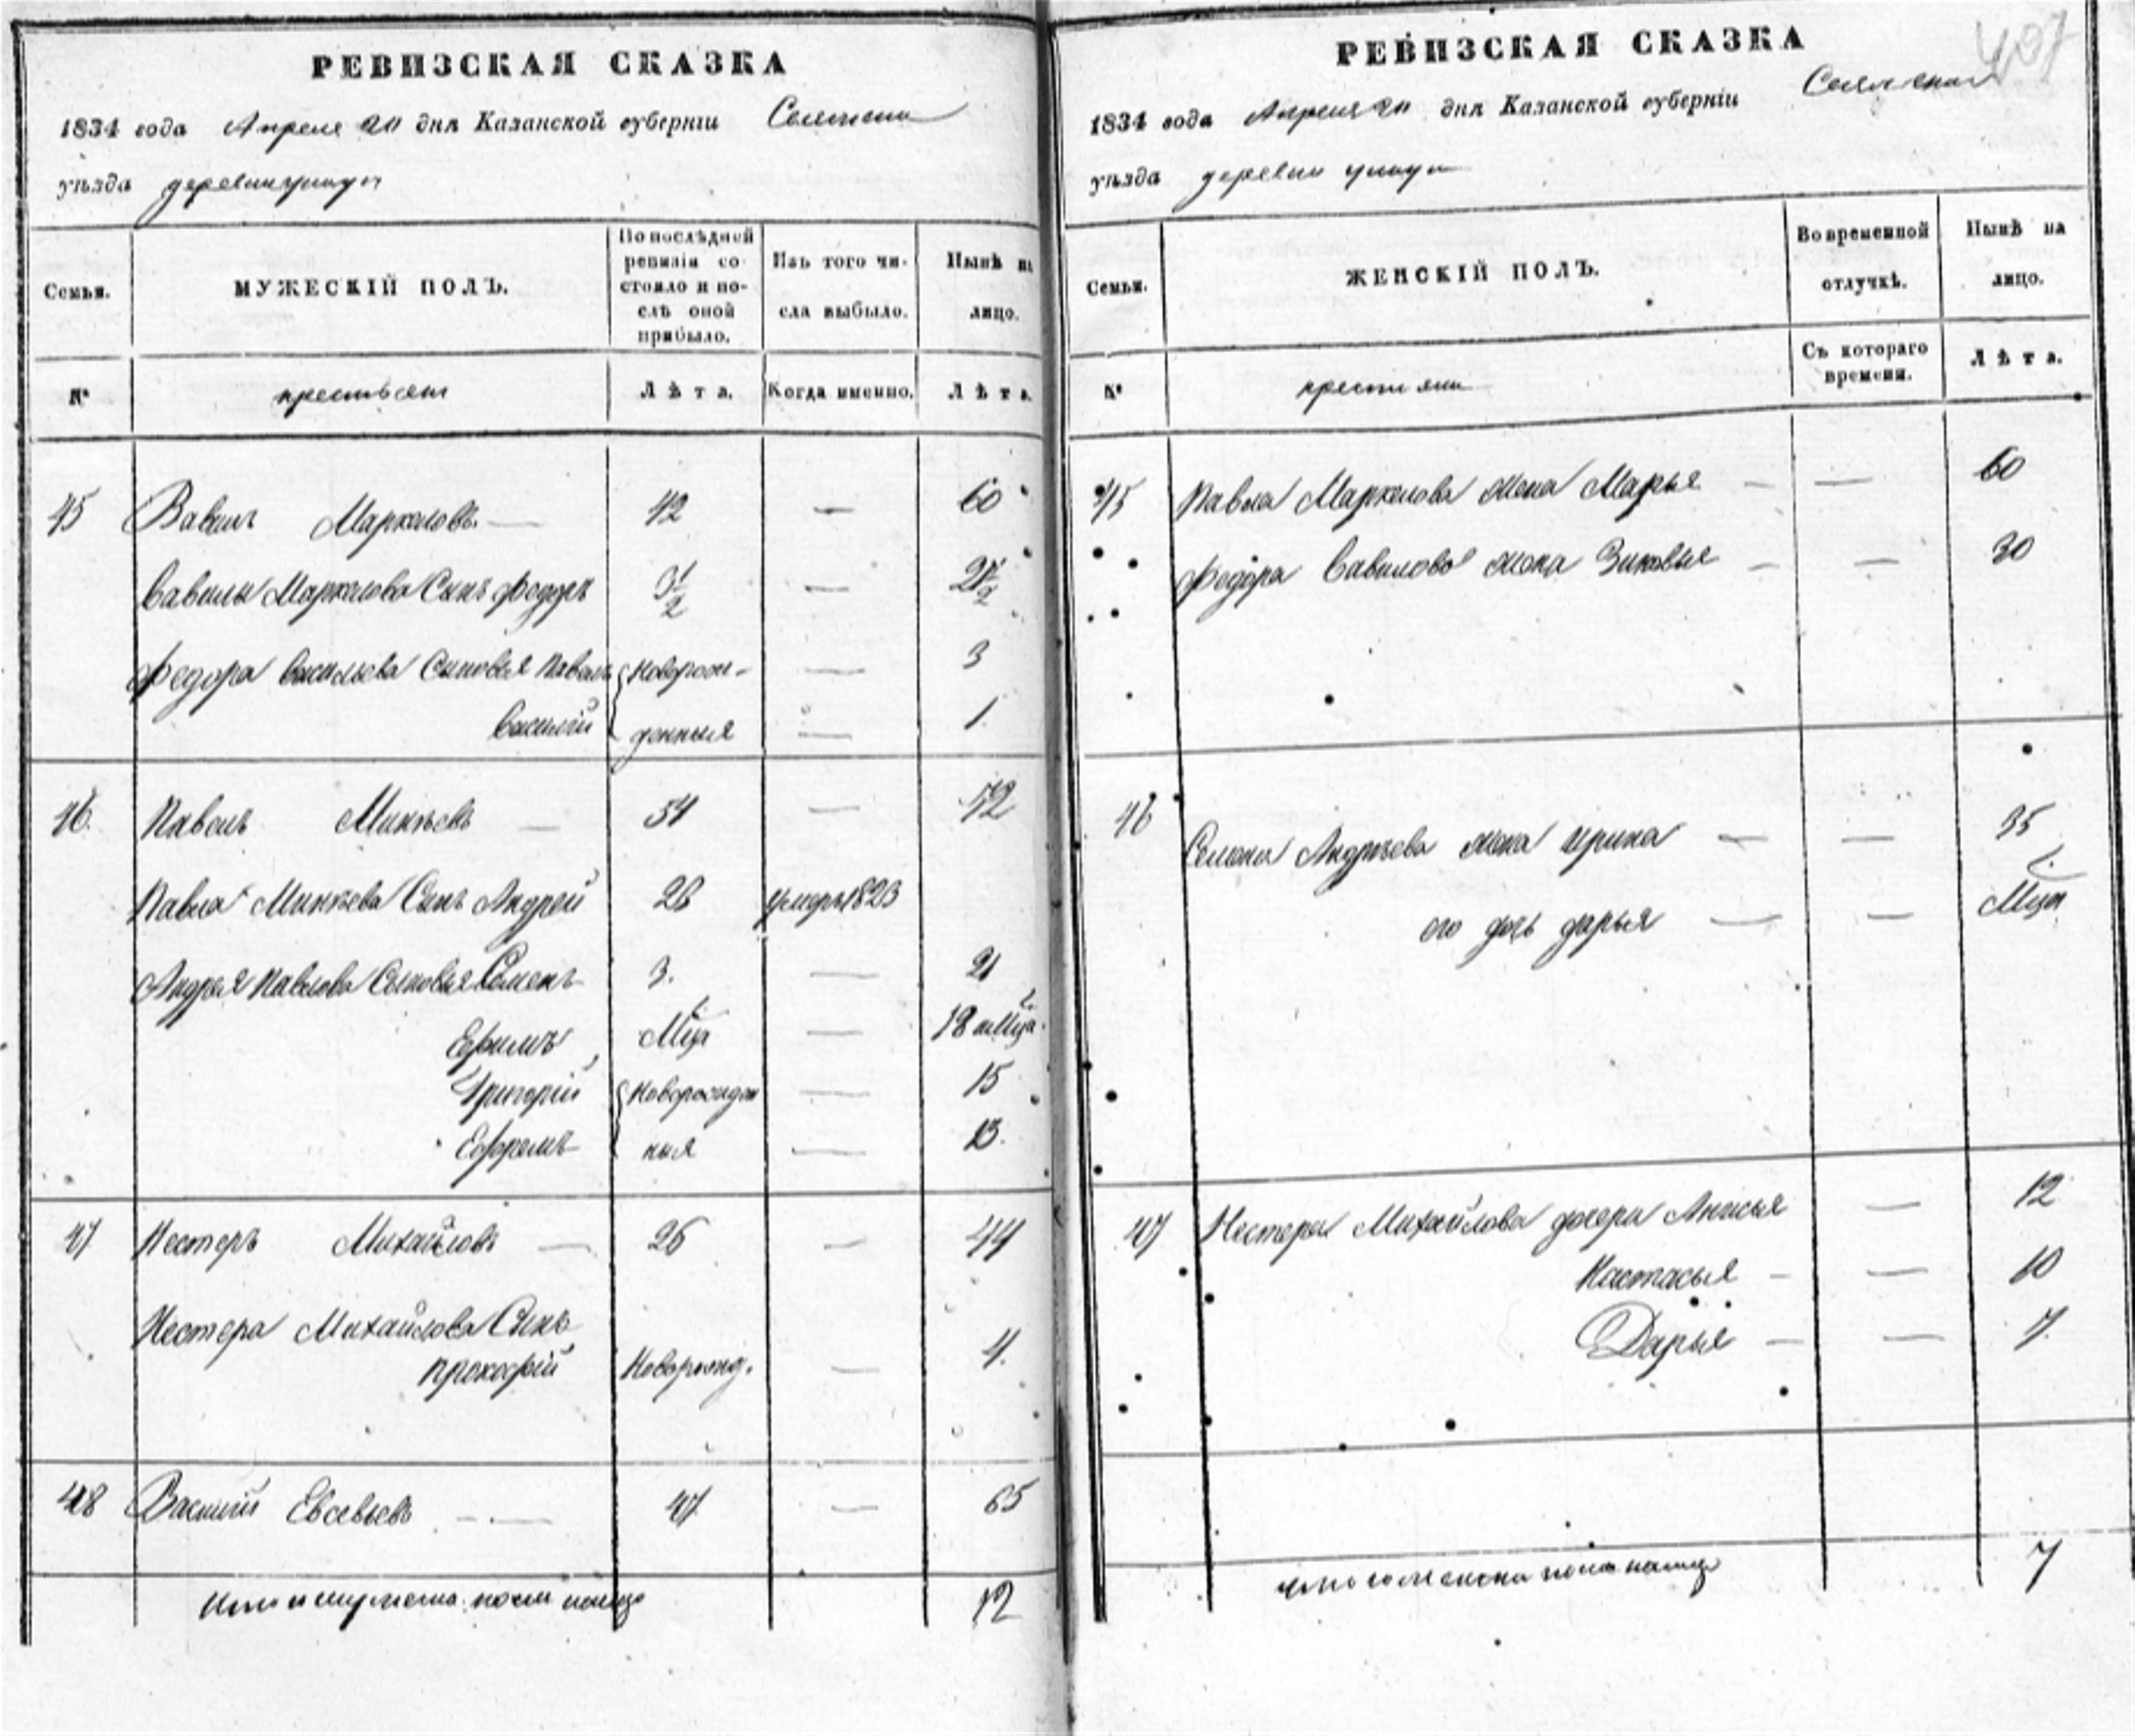 407
РЕВИЗСКАЯ СКАЗКА
1834 года Апреля 20 дня Казанской губерніи
уѣзда деревни
Семьи.
МУЖЕСКІЙ ПОЛЪ.
По послѣдней ревизіи состояло и послѣ оной прибыло.
Изъ того числа выбыло.
Нынѣ на лицо.
№
крестьяне
Лѣта.
Когда именно.
Лѣта.
45 Вавилъ Маркеловъ — 42 — 60
Вавилы Маркелова Сынъ Федоръ 3 1/2 — 21 1/2
Федора Васильева Сыновья Павелъ Новорож- — 3
Василій денныя — 1
46. Павелъ Минѣевъ — 54 — 72
Павла Минѣева Сынъ Андрей 26 умеръ 1823
Андрея Павлова Сыновья Семенъ 3. — 21
Ефимъ Мца — 18 и Мца
Григорій Новорожден — 15
Ефремъ ныя — 13.
47 Нестеръ Михайловъ — 26 — 44
Нестера Михайлова Сынъ
Прокофій Новорожд. — 4.
48 Василій Евсевьевъ — 47 — 65
Итого мужеска пола налицо 12
РЕВИЗСКАЯ СКАЗКА
1834 года Апреля 20 дня Казанской губерніи
уѣзда деревни
Семьи.
ЖЕНСКІЙ ПОЛЪ.
Во временной отлучкѣ.
Нынѣ на лицо.
№
крестьяне
Съ котораго времени.
Лѣта.
45 Павла Маркелова жена Марья — — 60
Федора Вавилова жена Зиновья — — 30
46 Семена Андрѣева жена Ирина — — 35
его дочь Дарья — — Мца
47 Нестера Михайлова дочери Анисья — 12
Настасья — — 10
Дарья — — 7
Итого женска пола налицо 7